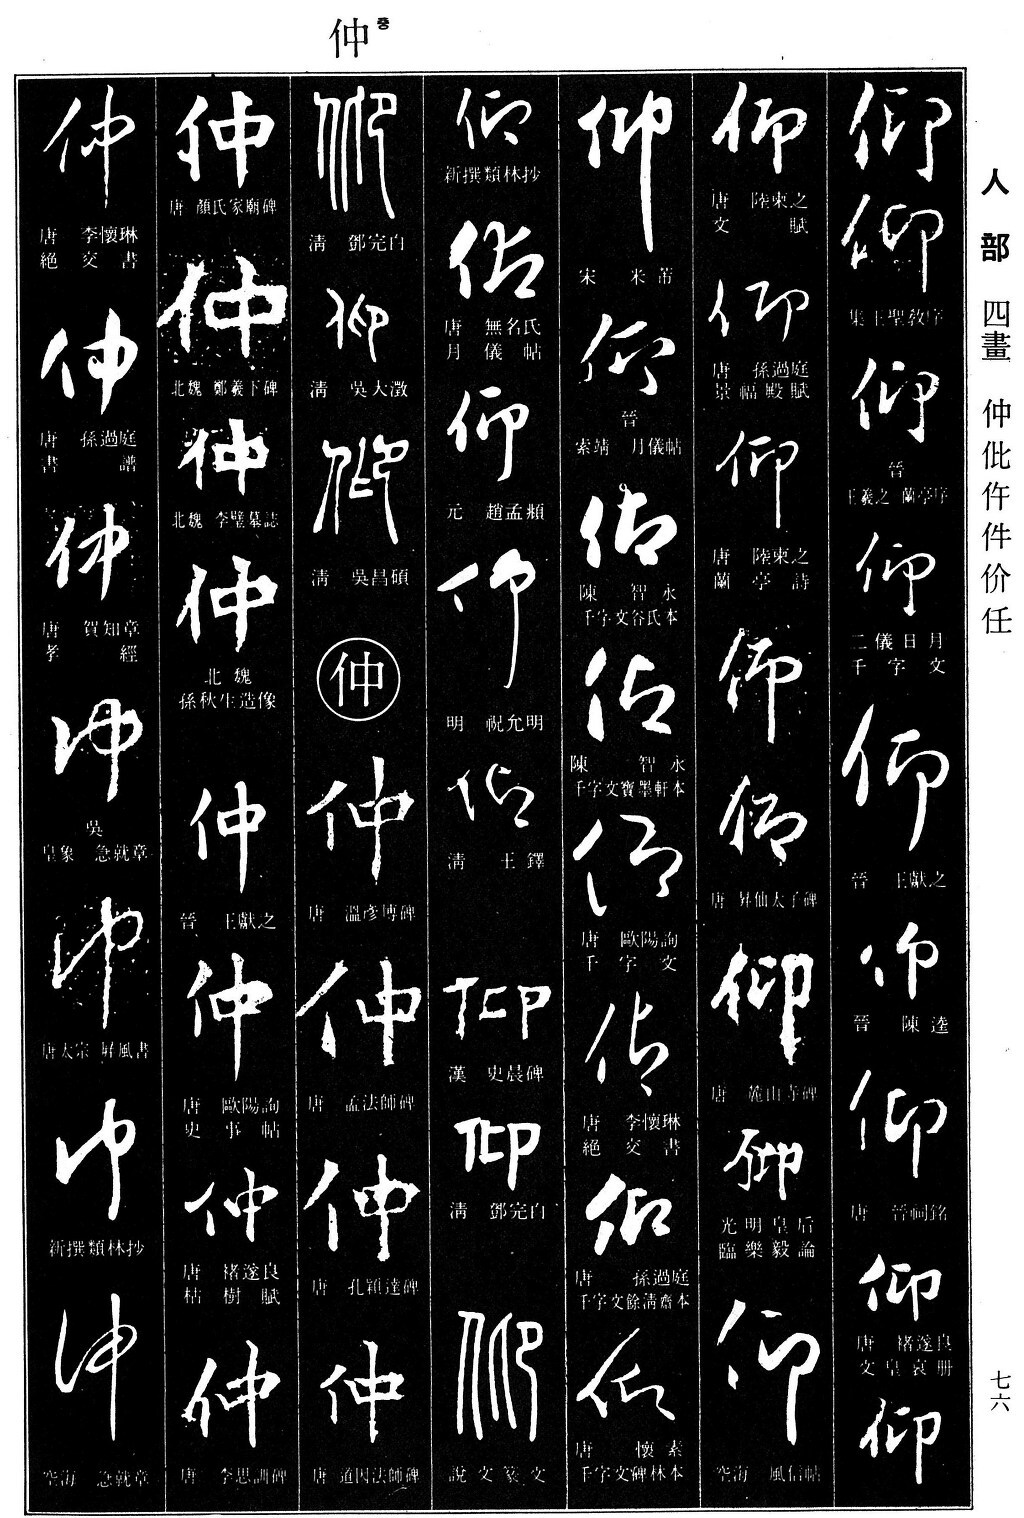 仲 중
人部 四畫 仲仳仵件价任
七六
仰
仰
集王聖教序
仰
晉
王羲之 蘭亭序
仰
二儀日月
千字文
仰
晉 王獻之
仰
晉 陳逵
仰
唐 晉祠銘
仰
唐 褚遂良
文皇哀册
仰
仰
唐 陸柬之
文賦
仰
唐 孫過庭
景福殿賦
仰
唐 陸柬之
蘭亭詩
仰
仰
唐 昇仙太子碑
仰
唐 麓山寺碑
仰
光明皇后
臨樂毅論
仰
空海 風信帖
仰
宋 米芾
仰
晉
索靖 月儀帖
仰
陳 智永
千字文谷氏本
仰
陳 智永
千字文寶墨軒本
仰
唐 歐陽詢
千字文
仰
唐 李懷琳
絕交書
仰
唐 孫過庭
千字文餘清齋本
仰
唐 懷素
千字文碑林本
仰
新撰類林抄
仰
唐 無名氏
月儀帖
仰
元 趙孟頫
仰
明 祝允明
仰
清 王鐸
仰
漢 史晨碑
仰
清 鄧完白
仰
說文篆文
仰
清 鄧完白
仰
清 吳大澂
仰
清 吳昌碩
仲
仲
唐 溫彥博碑
仲
唐 孟法師碑
仲
唐 孔穎達碑
仲
唐 道因法師碑
仲
唐 顏氏家廟碑
仲
北魏 鄭羲下碑
仲
北魏 李璧墓誌
仲
北魏
孫秋生造像
仲
晉 王獻之
仲
唐 歐陽詢
史事帖
仲
唐 褚遂良
枯樹賦
仲
唐 李思訓碑
仲
唐 李懷琳
絕交書
仲
唐 孫過庭
書譜
仲
唐 賀知章
孝經
仲
吳
皇象 急就章
仲
唐太宗 屏風書
仲
新撰類林抄
仲
空海 急就章